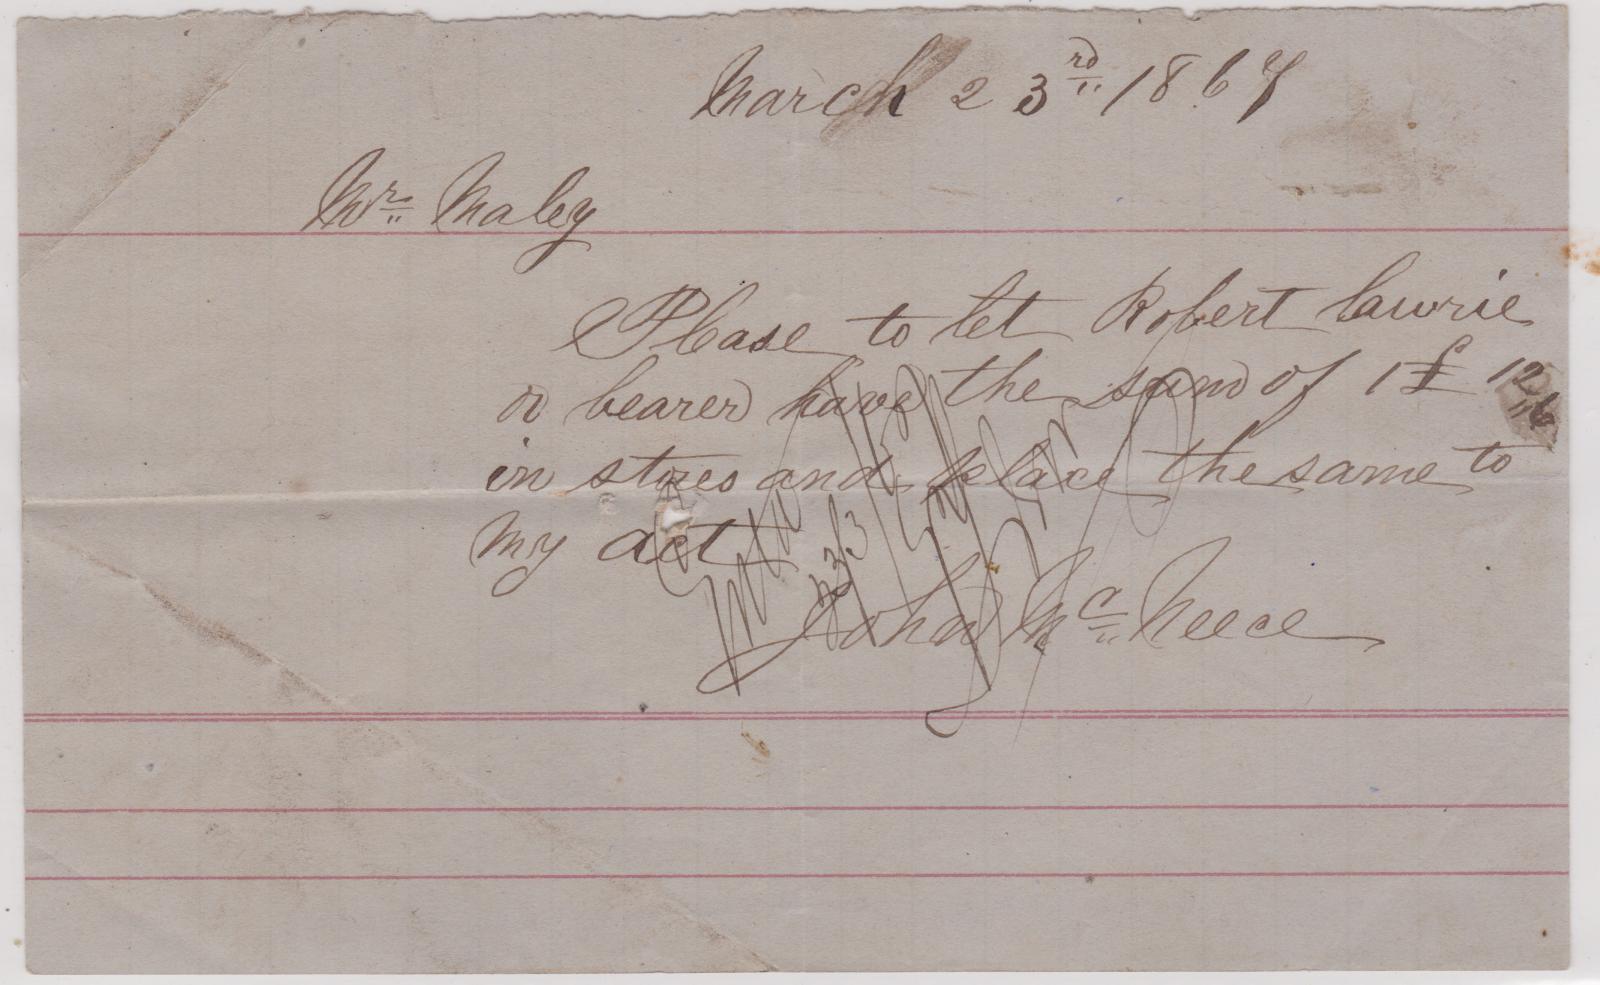 March 23rd 1867
Mr Maley
Please to let Robert Lawrie
or bearer have the sum of 1£ 12"6
in stores and place the same to
my act
John Mc Neece
23/3/67